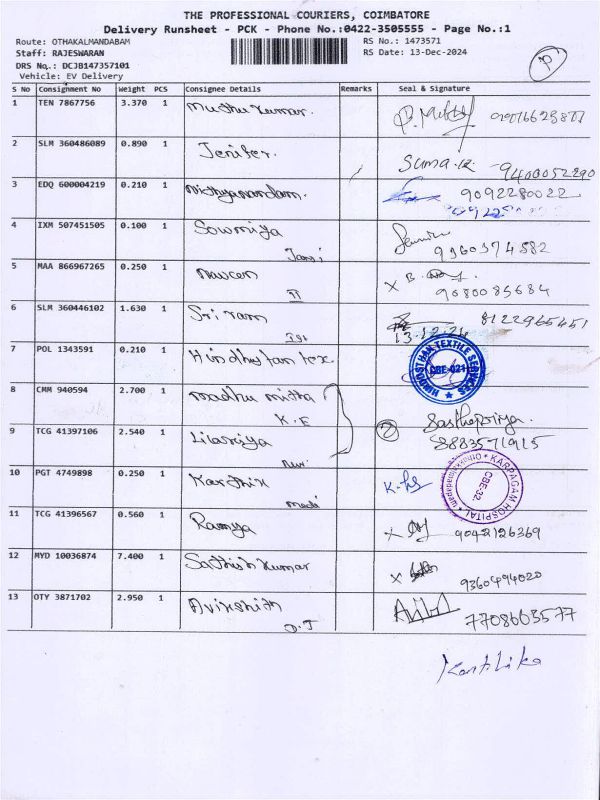 THE PROFESSIONAL COURIERS, COIMBATORE
Delivery Runsheet - PCK - Phone No.:0422-3505555 - Page No.:1
Route: OTHAKALMANDABAM
RS No.: 1473571
Staff: RAJESWARAN
RS Date: 13-Dec-2024
DRS No.: DCJB147357101
Vehicle: EV Delivery
P
S No Consignment No Weight PCS Consignee Details Remarks Seal & Signature
1 TEN 7867756 3.370 1 Muthu kumar.
2 SLM 360486089 0.890 1 Jenifer. Suma.R 9400052290
3 EDQ 600004219 0.210 1 Nithyanandam. 9092280022
4 IXM 507451505 0.100 1 Sowmiya 9360374582
5 MAA 866967265 0.250 1 Naveen X B. 9080085684
6 SLM 360446102 1.630 1 Sri ram 8122965451
13-12-24
7 POL 1343591 0.210 1 Hindhustan tex.
HINDUSTHAN TEXTILE SERVICES
CBE-021
8 CMM 940594 2.700 1 Madhu mitha
K.E
2 Sasthepriya.
9 TCG 41397106 2.540 1 8883571915
10 PGT 4749898 0.250 1 Karthik
Medi
KARPAGAM HOSPITAL
CBE-32.
11 TCG 41396567 0.560 1 Ramya X 9042126369
12 MYD 10036874 7.400 1 Sathish kumar X 9360494020
13 OTY 3871702 2.950 1 7708603577
Karthika